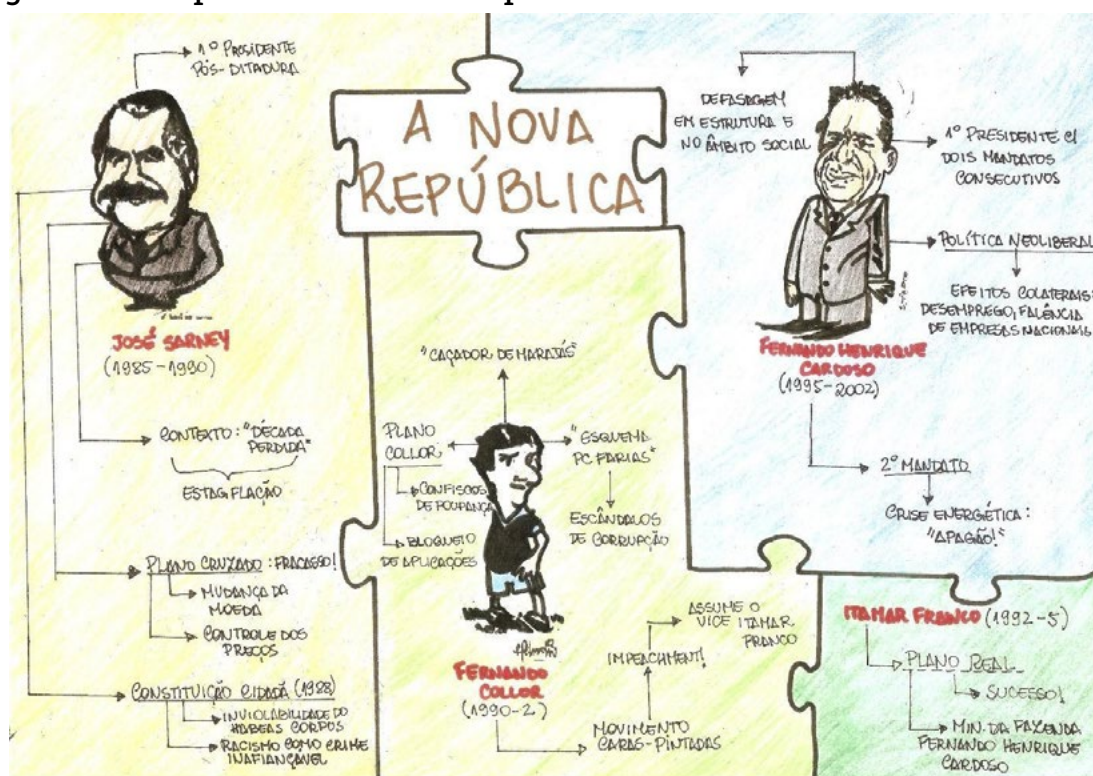 A NOVA
REPÚBLICA
1º PRESIDENTE
PÓS-DITADURA
JOSÉ SARNEY
(1985-1990)
CONTEXTO: "DÉCADA
PERDIDA"
ESTAGFLAÇÃO
PLANO CRUZADO: FRACASSO!
MUDANÇA DA
MOEDA
CONTROLE DOS
PREÇOS
CONSTITUIÇÃO CIDADÃ (1988)
INVIOLABILIDADE DO
HABEAS CORPUS
RACISMO COMO CRIME
INAFIANÇÁVEL
"CAÇADOR DE MARAJÁS"
PLANO
COLLOR
CONFISCOS
DE POUPANÇA
BLOQUEIO
DE APLICAÇÕES
"ESQUEMA
PC FARIAS"
ESCÂNDALOS
DE CORRUPÇÃO
FERNANDO
COLLOR
(1990-2)
MOVIMENTO
CARAS-PINTADAS
IMPEACHMENT!
ASSUME O
VICE ITAMAR
FRANCO
DEFASAGEM
EM ESTRUTURA E
NO ÂMBITO SOCIAL
1º PRESIDENTE C/
DOIS MANDATOS
CONSECUTIVOS
POLÍTICA NEOLIBERAL
EFEITOS COLATERAIS:
DESEMPREGO, FALÊNCIA
DE EMPRESAS NACIONAIS
FERNANDO HENRIQUE
CARDOSO
(1995-2002)
2º MANDATO
CRISE ENERGÉTICA:
"APAGÃO!"
ITAMAR FRANCO (1992-5)
PLANO REAL
SUCESSO!
MIN. DA FAZENDA
FERNANDO HENRIQUE
CARDOSO